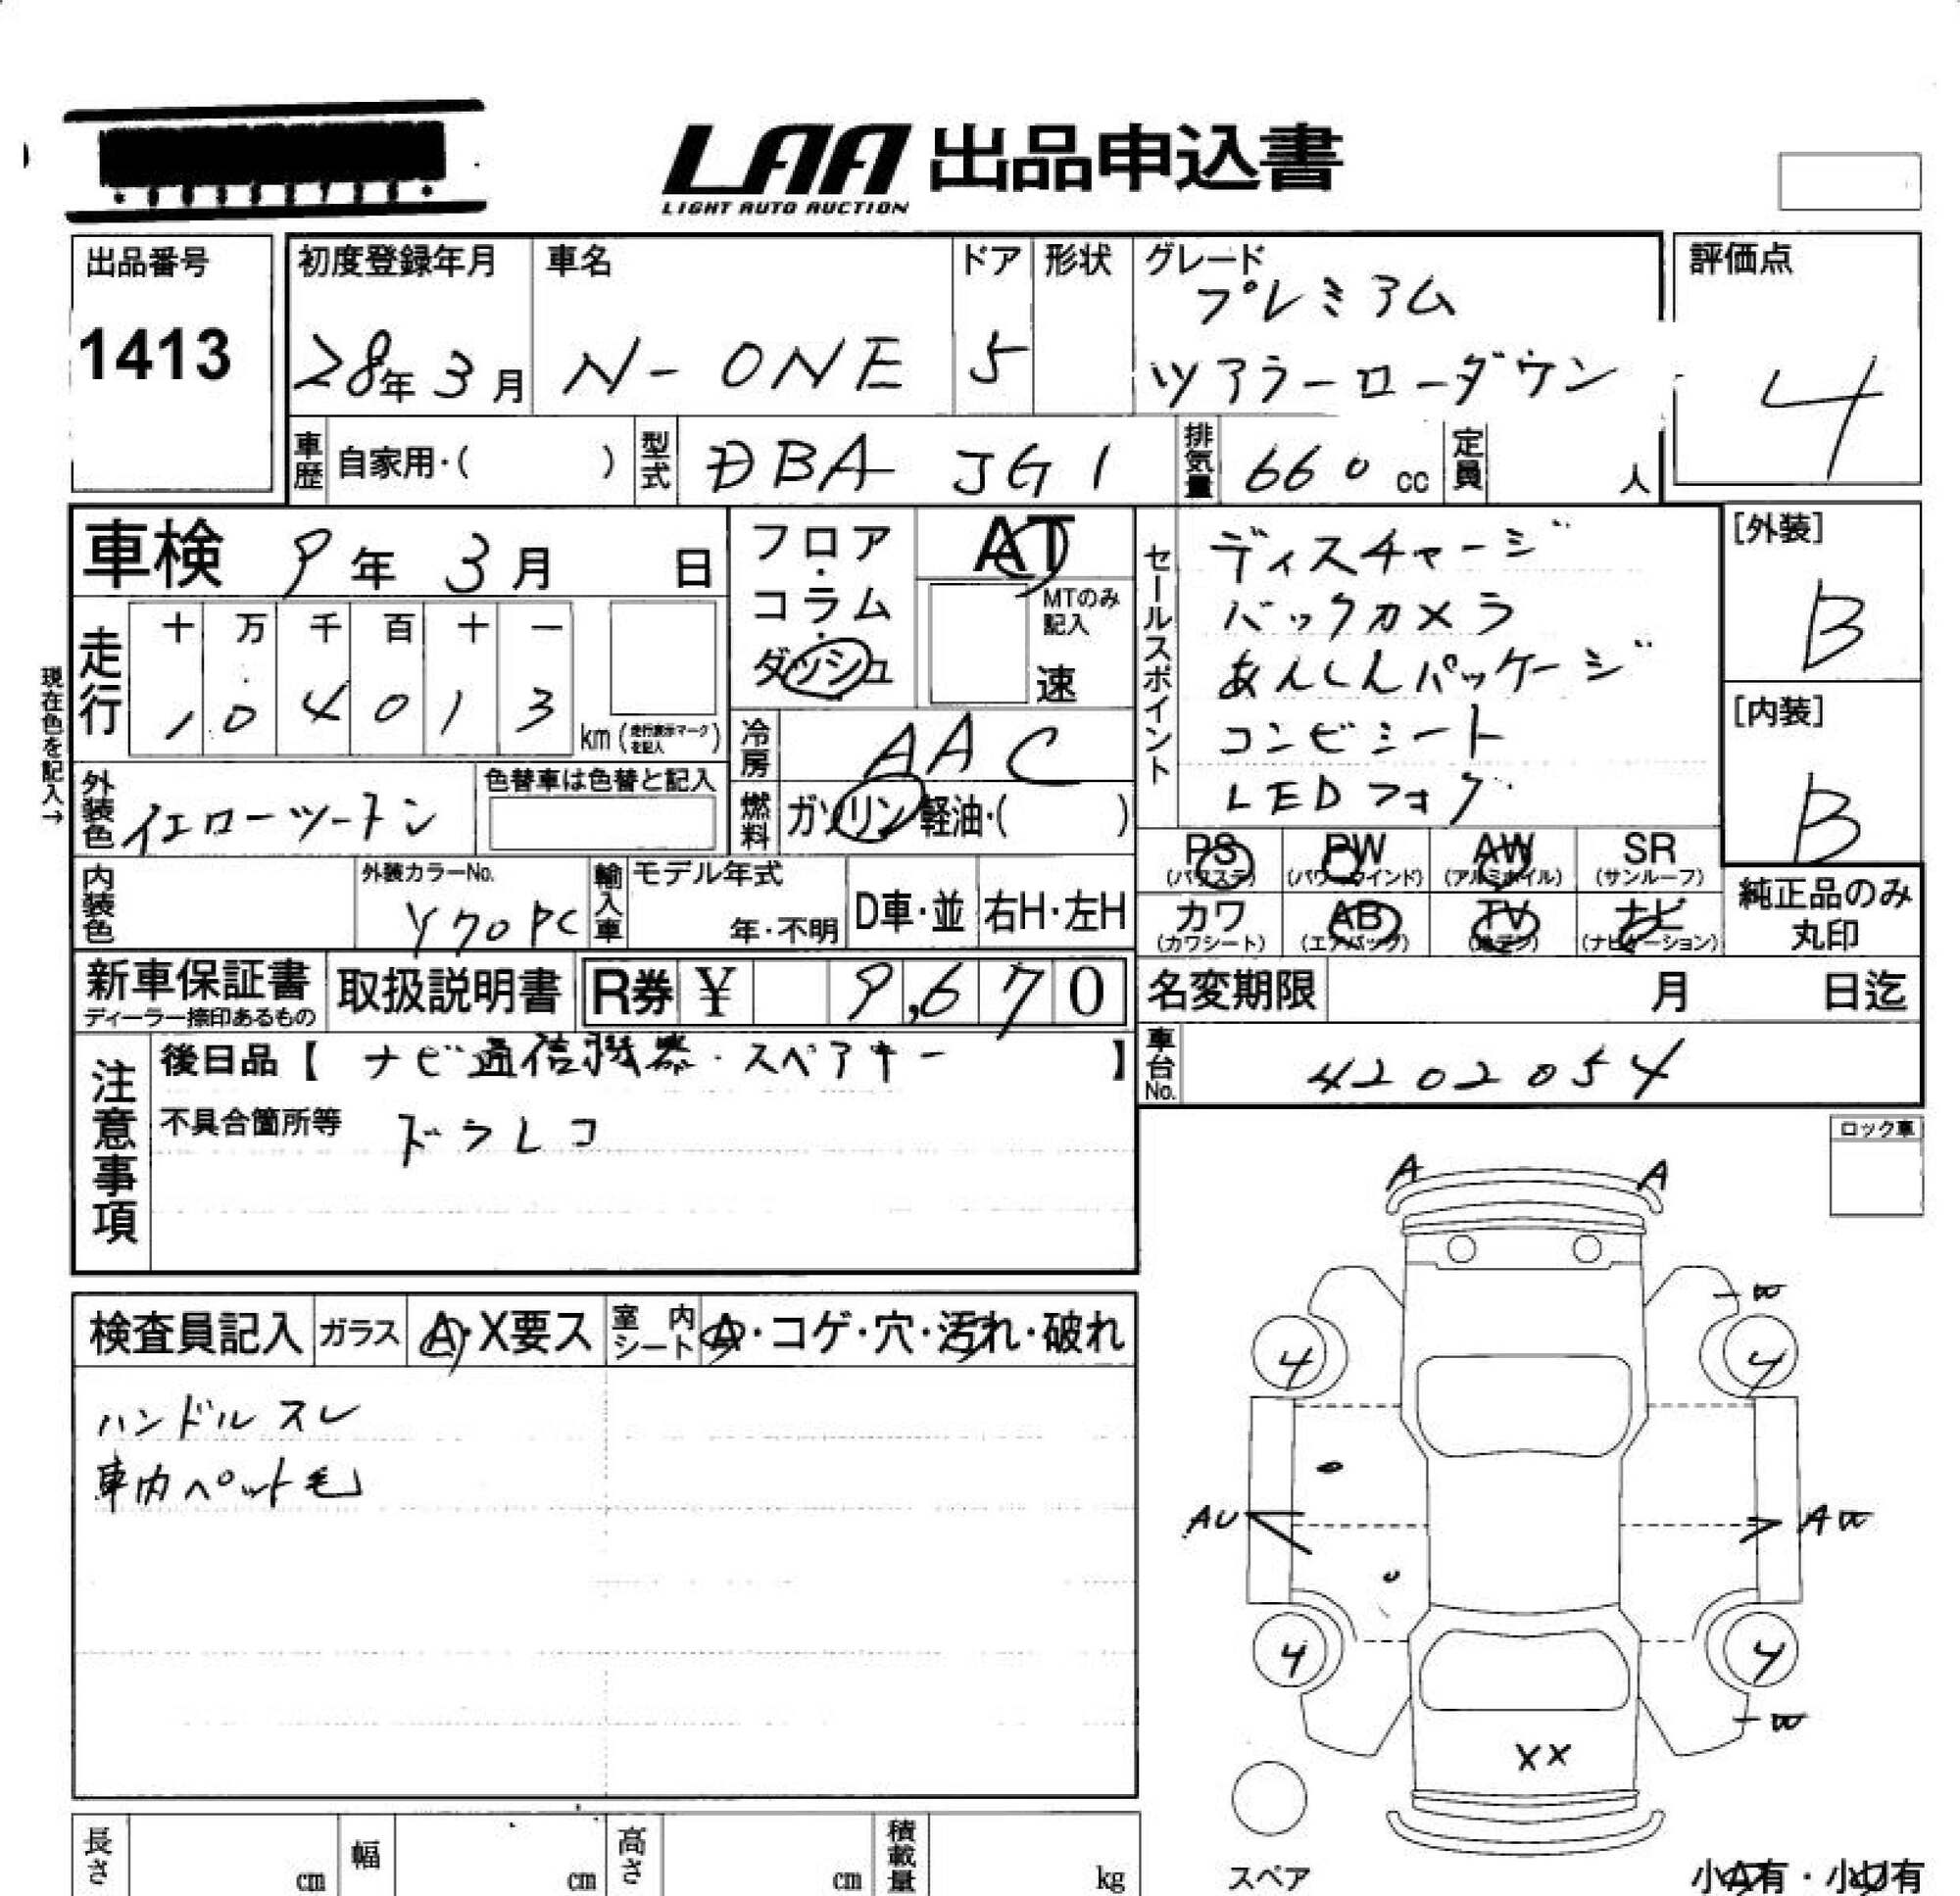 LAA 出品申込書
LIGHT AUTO AUCTION
出品番号
1413
初度登録年月
28年3月
車名
N-ONE
ドア
5
形状
グレード
プレミアム
ツアラーローダウン
評価点
4
車歴
自家用・( )
型式
DBA JG1
排気量
660 cc
定員
人
車検 9年 3月 日
フロア・コラム・ダッシュ
AT
MTのみ記入
速
走行
十 万 千 百 十 一
1 0 4 0 1 3
km (走行表示マークを記入)
現在色を記入→
冷房
AAC
外装色
イエローツートン
色替車は色替と記入
燃料
ガソリン・軽油・( )
セールスポイント
ディスチャージ
バックカメラ
あんしんパッケージ
コンビシート
LEDフォグ
[外装]
B
[内装]
B
PS (パワステ)
PW (パワーウインド)
AW (アルミホイル)
SR (サンルーフ)
カワ (カワシート)
AB (エアバッグ)
TV
ナビ (ナビゲーション)
純正品のみ丸印
内装色
外装カラーNo.
Y70PC
輸入車
モデル年式
年・不明
D車・並
右H・左H
新車保証書
ディーラー捺印あるもの
取扱説明書
R券 ¥ 9,670
名変期限 月 日迄
車台No.
4202054
注意事項
後日品【 ナビ通信機器・スペアキー 】
不具合箇所等 ドラレコ
ロック車
検査員記入
ガラス
A・X要ス
室内シート
A・コゲ・穴・汚れ・破れ
ハンドルスレ
車内ペット毛
A A
4 4
AU
4 4
XX
スペア
長さ cm
幅 cm
高さ cm
積載量 kg
小A有・小U有